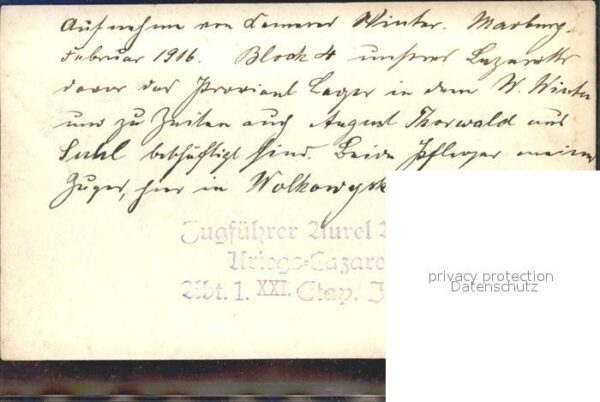 Aufnahme von Kamerad Winter. Marburg.
Februar 1916. Block 4 unseres Lazaretts
davor das Proviant Lager in dem W. Winter
und zu Zeiten auch August Thorwald aus
Suhl beschäftigt sind. Beide Pfleger meines
Zuges, hier in Wolkowysk
Zugführer Aurel
Kriegs=Lazare
Abt. 1. XXI. Etap. I
privacy protection
Datenschutz